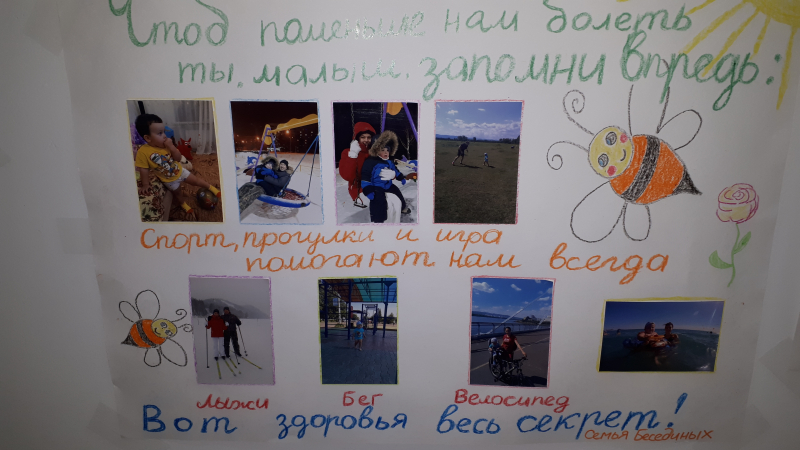 Чтоб поменьше нам болеть
ты, малыш, запомни впредь:
Спорт, прогулки и игра
помогают нам всегда
Лыжи Бег Велосипед
Вот здоровья весь секрет!
Семья Бесединых